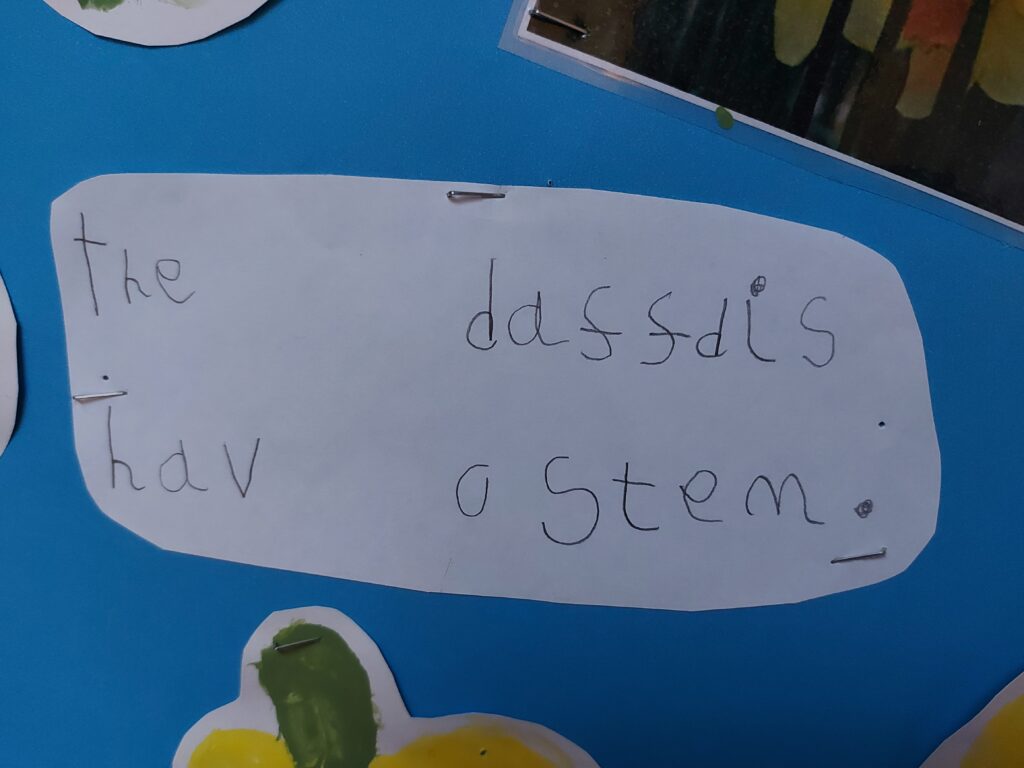 the daffdis
hav a stem.